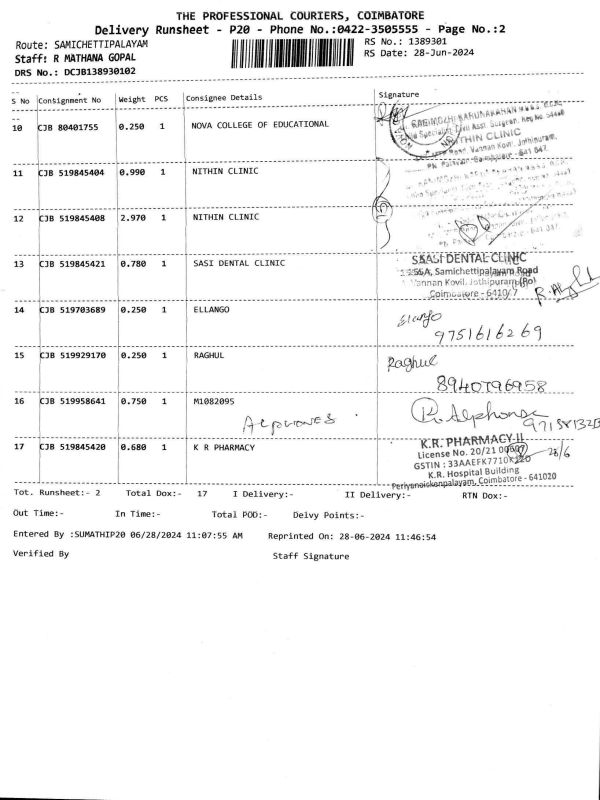 THE PROFESSIONAL COURIERS, COIMBATORE
Delivery Runsheet - P20 - Phone No.:0422-3505555 - Page No.:2
Route: SAMICHETTIPALAYAM
RS No.: 1389301
Staff: R MATHANA GOPAL
RS Date: 28-Jun-2024
DRS No.: DCJB138930102
S No Consignment No Weight PCS Consignee Details Signature
10 CJB 80401755 0.250 1 NOVA COLLEGE OF EDUCATIONAL
NITHIN CLINIC
11 CJB 519845404 0.990 1 NITHIN CLINIC
12 CJB 519845408 2.970 1 NITHIN CLINIC
13 CJB 519845421 0.780 1 SASI DENTAL CLINIC
SASI DENTAL CLINIC
Samichettipalayam Road
Vannan Kovil, Jothipuram (Po)
Coimbatore -
14 CJB 519703689 0.250 1 ELLANGO
Elango
9751616269
15 CJB 519929170 0.250 1 RAGHUL
Raghul
8940796958
16 CJB 519958641 0.750 1 M1082095
Alphones
R. Alphonse
17 CJB 519845420 0.680 1 K R PHARMACY
K.R. PHARMACY II
License No. 20/21
GSTIN : 33AAEFK7710
28/6
K.R. Hospital Building
Periyanaickenpalayam, Coimbatore - 641020
Tot. Runsheet:- 2 Total Dox:- 17 I Delivery:- II Delivery:- RTN Dox:-
Out Time:- In Time:- Total POD:- Delvy Points:-
Entered By :SUMATHIP20 06/28/2024 11:07:55 AM Reprinted On: 28-06-2024 11:46:54
Verified By Staff Signature